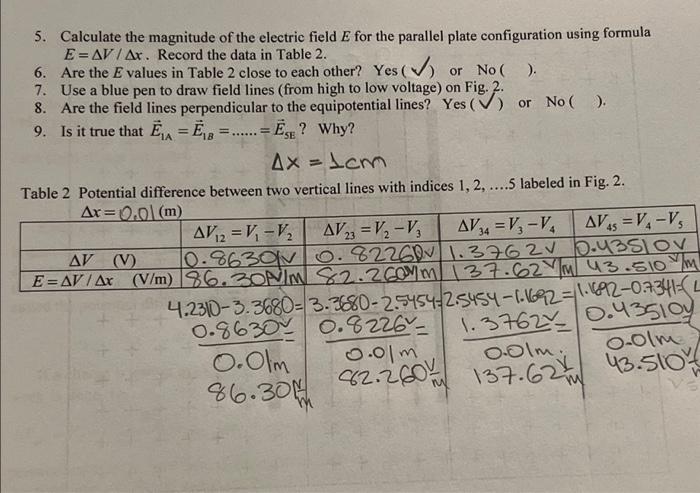 5. Calculate the magnitude of the electric field E for the parallel plate configuration using formula
E = ΔV / Δx. Record the data in Table 2.
6. Are the E values in Table 2 close to each other? Yes (✓) or No ( ).
7. Use a blue pen to draw field lines (from high to low voltage) on Fig. 2.
8. Are the field lines perpendicular to the equipotential lines? Yes (✓) or No ( ).
9. Is it true that E⃗1A = E⃗1B = ...... = E⃗5E ? Why?
Δx = 1cm
Table 2 Potential difference between two vertical lines with indices 1, 2, ....5 labeled in Fig. 2.
Δx = 0.01 (m)
ΔV12 = V1 − V2 ΔV23 = V2 − V3 ΔV34 = V3 − V4 ΔV45 = V4 − V5
ΔV (V) 0.8630V 0.82260V 1.3762V 0.43510V
E = ΔV / Δx (V/m) 86.30V/m 82.260V/m 137.62V/m 43.510V/m
4.2310-3.3680= 3.3680-2.5454= 2.5454-1.1692= 1.1692-0.7341=
0.8630V= 0.8226V= 1.3762V= 0.43510V
0.01m 0.01m 0.01m 0.01m
86.30V/m 82.260V/m 137.62V/m 43.510V